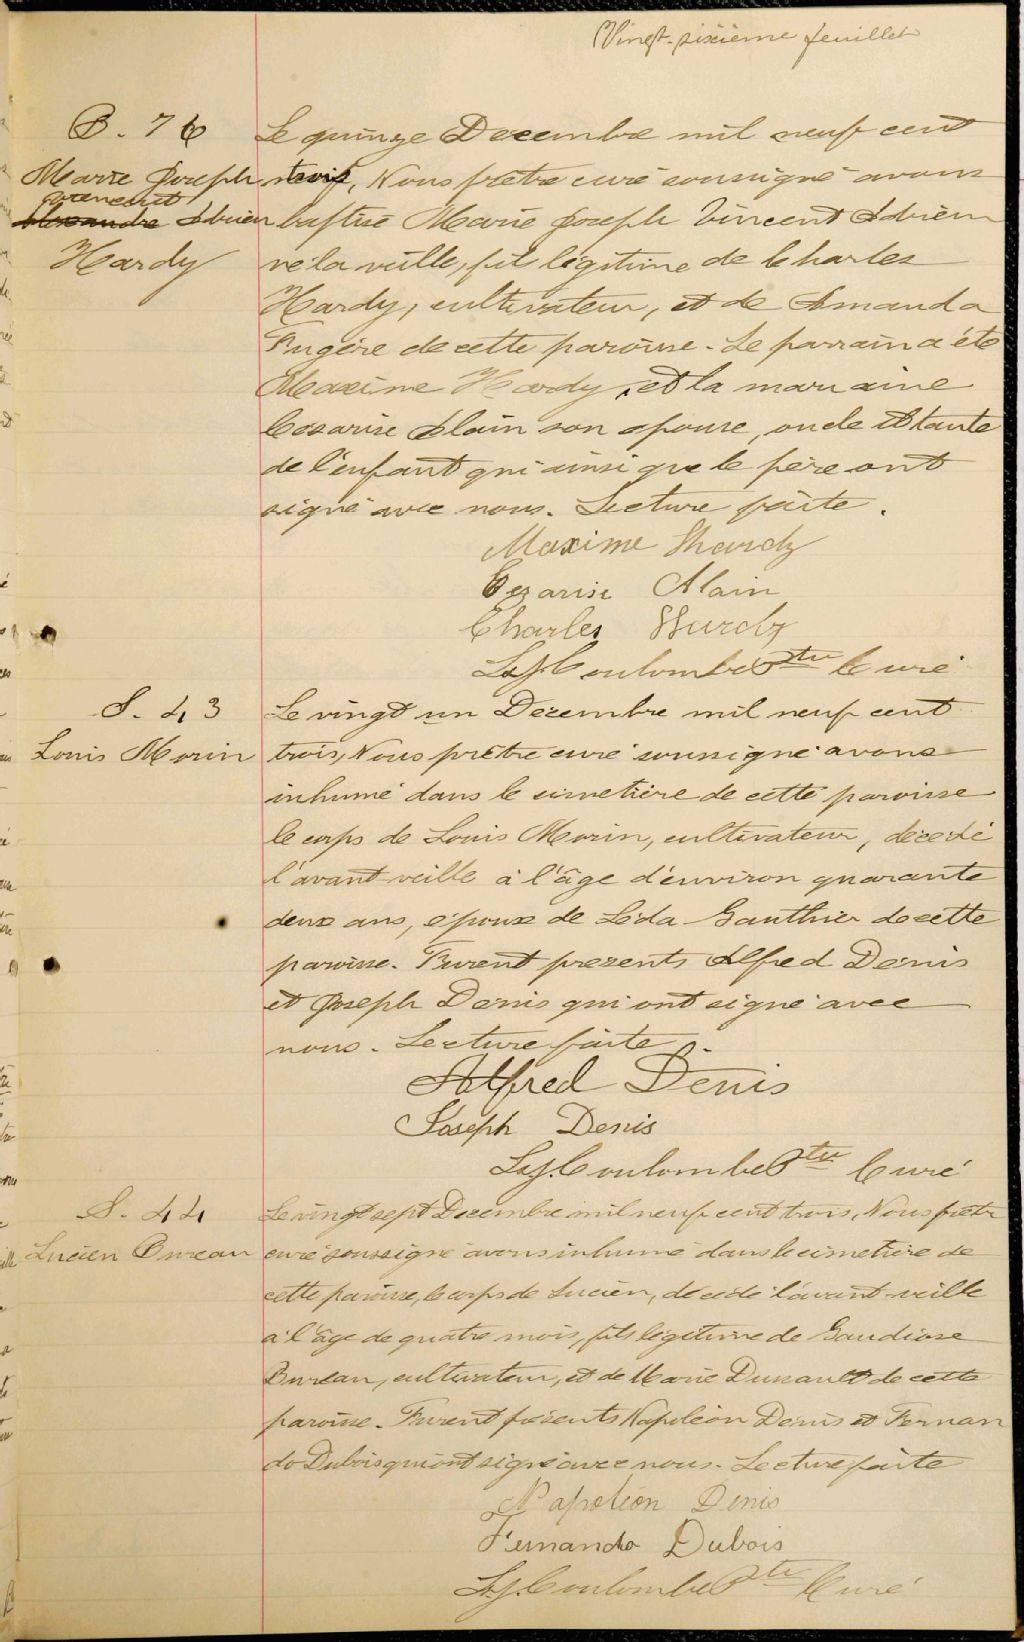 Vingt-sixième feuillet
B. 76
Marie Joseph
Vincent
Alexandre Adrien
Hardy
Le quinze Decembre mil neuf cent
trois, Nous prêtre curé soussigné avons
baptisé Marie Joseph Vincent Adrien
né la veille, fils légitime de Charles
Hardy, cultivateur, et de Amanda
Fugère de cette paroisse. Le parrain a été
Maxime Hardy, et la marraine
Cesarise Alain son epouse, oncle et tante
de l'enfant qui ainsi que le père ont
signé avec nous. Lecture faite.
Maxime Hardy
Cezarise Alain
Charles Hardy
L.J. Coulombe Ptre Curé
S. 43
Louis Morin
Le vingt un Decembre mil neuf cent
trois, Nous prêtre curé soussigné avons
inhumé dans le cimetière de cette paroisse
le corps de Louis Morin, cultivateur, décedé
l'avant-veille à l'âge d'environ quarante
deux ans, époux de Léda Gauthier de cette
paroisse. Furent presents Alfred Denis
et Joseph Denis qui ont signé avec
nous. Lecture faite.
Alfred Denis
Joseph Denis
L.J. Coulombe Ptre Curé
S. 44
Lucien Bureau
Le vingt sept Decembre mil neuf cent trois, Nous prêtre
curé soussigné avons inhumé dans le cimetière de
cette paroisse, le corps de Lucien, décédé l'avant-veille
à l'âge de quatre mois, fils legitime de Gaudiose
Bureau, cultivateur, et de Marie Dussault de cette
paroisse. Furent présents Napoléon Denis et Fernan
do Dubois qui ont signé avec nous. Lecture faite
Napoléon Denis
Fernando Dubois
L.J. Coulombe Ptre Curé